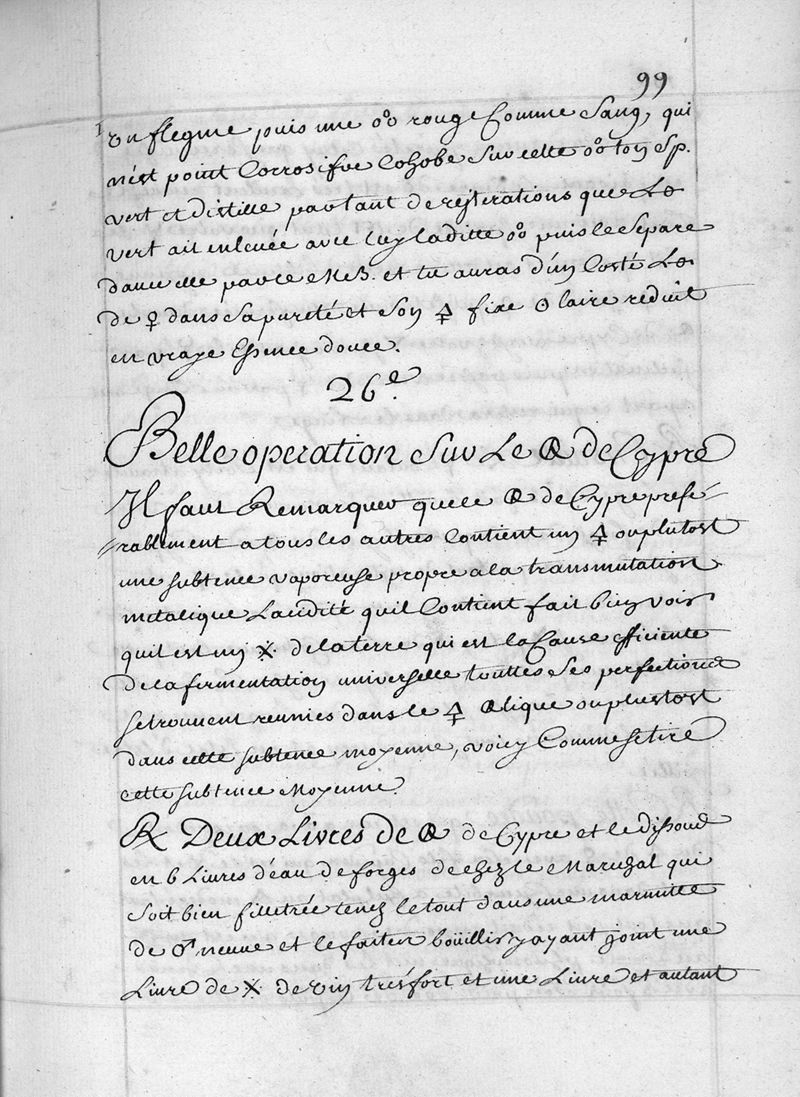 99
un flegme puis une o°o rouge Comme Sang, qui
n'est point Corrosifve Cohobe Sur cette o°o ton Sp.
vert et distille par tant de rejterations que Le
vert ait enlevée avec luy laditte o°o puis le Separe
d'avec elle par le MB. et tu auras d'un Costé Le
de ♀ dans sa pureté et Son 🜍 fixe Solaire reduit
en vraye Essence douce.
26.e
Belle operation Sur Le 🜖 de Cypre
Il faut Remarquer que le 🜖 de Cypre prefe-
rablement a tous les autres Contient un 🜍 ou plutost
une subtence vaporeuse propre a la transmutation
metalique Lacidité quil Contient fait bien voir
quil est un ⁜ de la terre qui est la Cause efficiente
de la fermentation universelle touttes Ses perfections
se trouvent reunies dans le 🜍 🜖lique ou plustost
dans cette subtence moyenne, voicy Comme se tire
cette subtence Moyenne.
℞ Deux Livres de 🜖 de Cypre et le dissoud
en 6 Livres d'eau de forges de chez le Marechal qui
Soit bien filletrée tenez le tout dans une marmitte
de ♂ neuve et le faiter boüillir y ayant joint une
Livre de ⁜ de vin tres fort et une Livre et autant